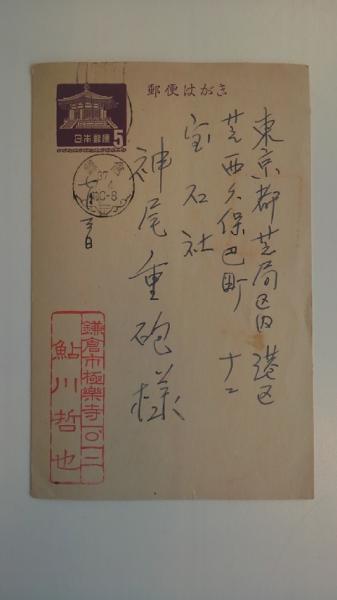 郵便はがき
日本郵便
5
鎌倉
37
東京都芝局区内 港区
芝西久保巴町 十二
宝石社
神尾重砲様
七月三日
鎌倉市極楽寺
鮎川哲也